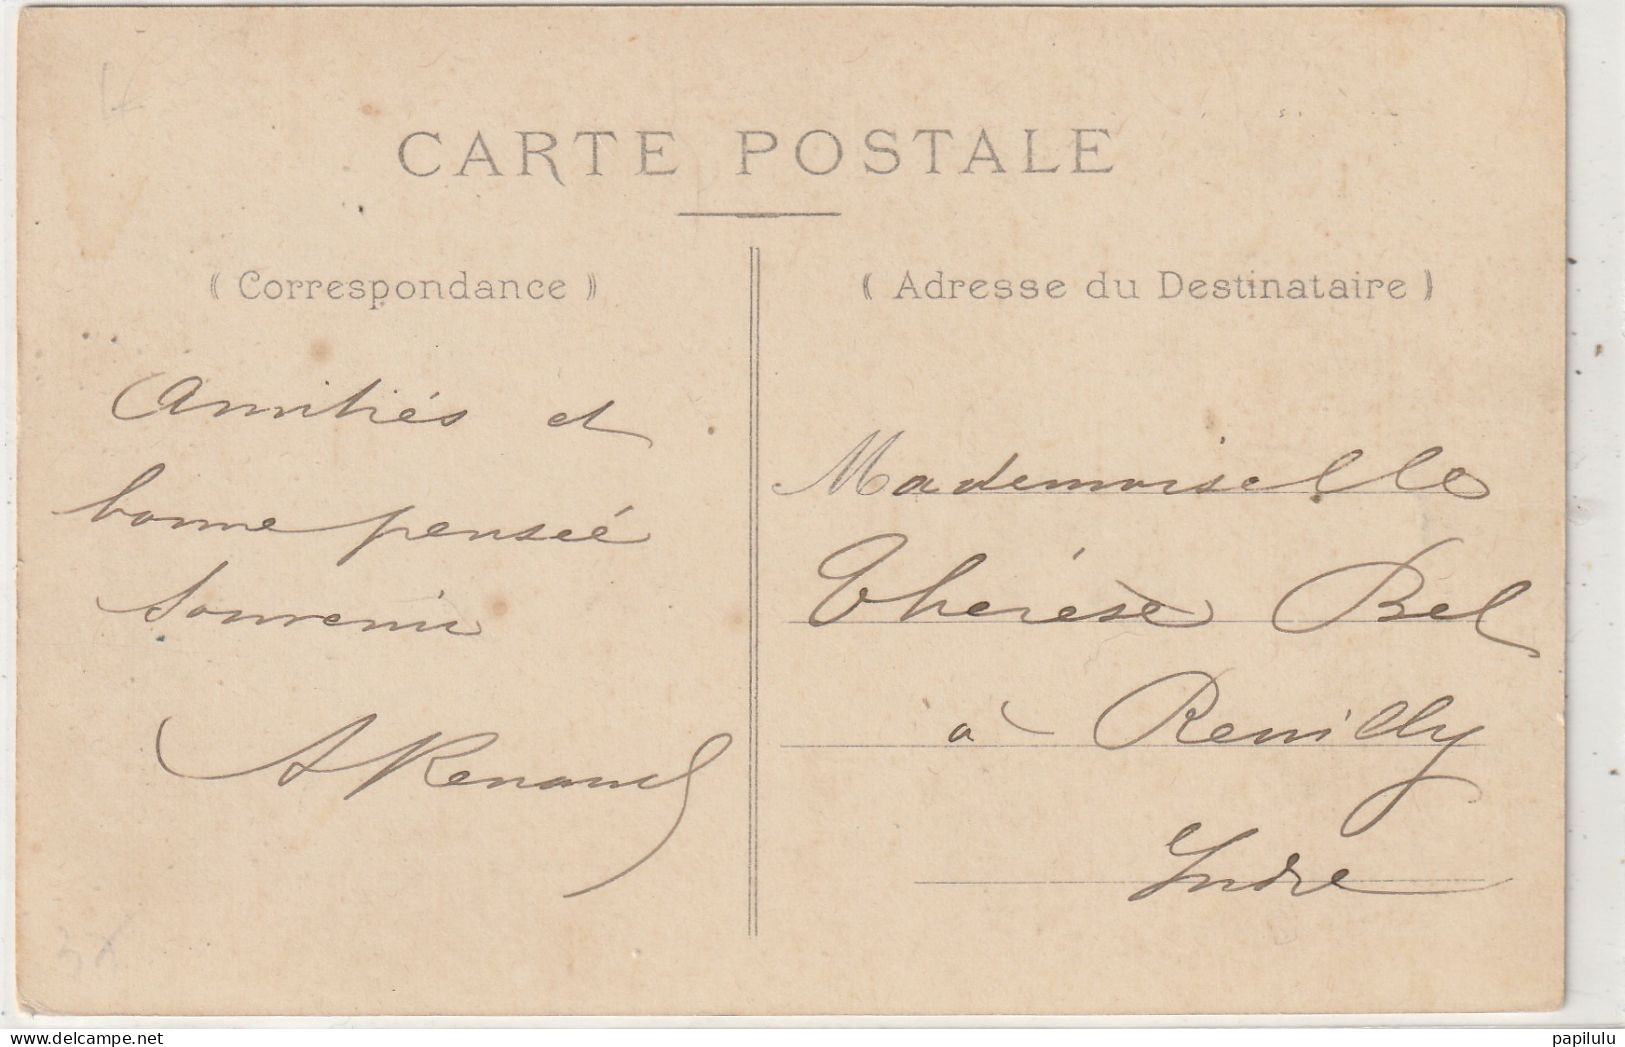 CARTE POSTALE
( Correspondance )
( Adresse du Destinataire )
Amitiés et
bonne penseé
Souvenir
A Renaud
Mademoiselle
Thérèse Bel
à Reuilly
Indre
papilulu